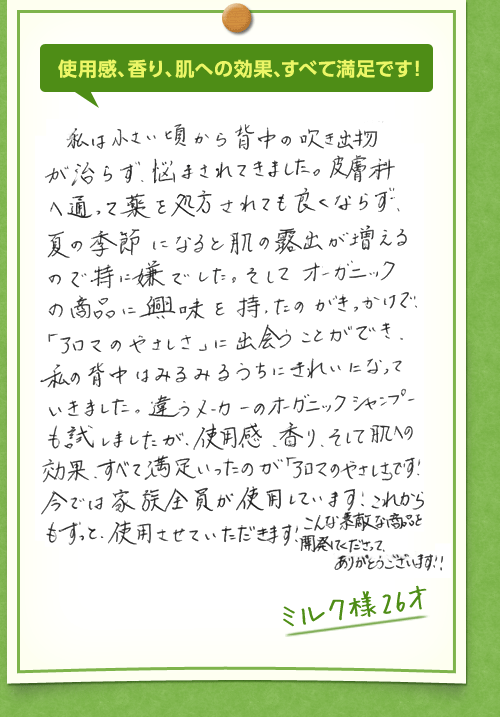 使用感、香り、肌への効果、すべて満足です!
私は小さい頃から背中の吹き出物
が治らず、悩まされてきました。皮膚科
へ通って薬を処方されても良くならず、
夏の季節になると肌の露出が増える
ので特に嫌でした。そして オーガニック
の商品に興味を持ったのがきっかけで、
「アロマのやさしさ」に出会うことができ、
私の背中はみるみるうちにきれいになって
いきました。違うメーカーのオーガニックシャンプー
も試しましたが、使用感、香り、そして肌への
効果、すべて満足いったのが「アロマのやさしさ」です!
今では家族全員が使用しています!これから
もずっと、使用させていただきます!
こんな素敵な商品を
開発してくださって、
ありがとうございます!!
ミルク様 26才